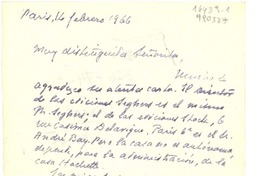 Paris, 16 febrero 1966
16439-1
990327
Muy distinguida Señorita,
Mucho le
agradezco su atenta carta. El director
de las ediciones Seghers es el mismo
P. Seghers, el de las ediciones Stock, 6
rue Casimir Delavigne, Paris 6e es el Sr.
André Bay. Pero la casa no es autónoma
depende, para la administración, de la
casa Hachette